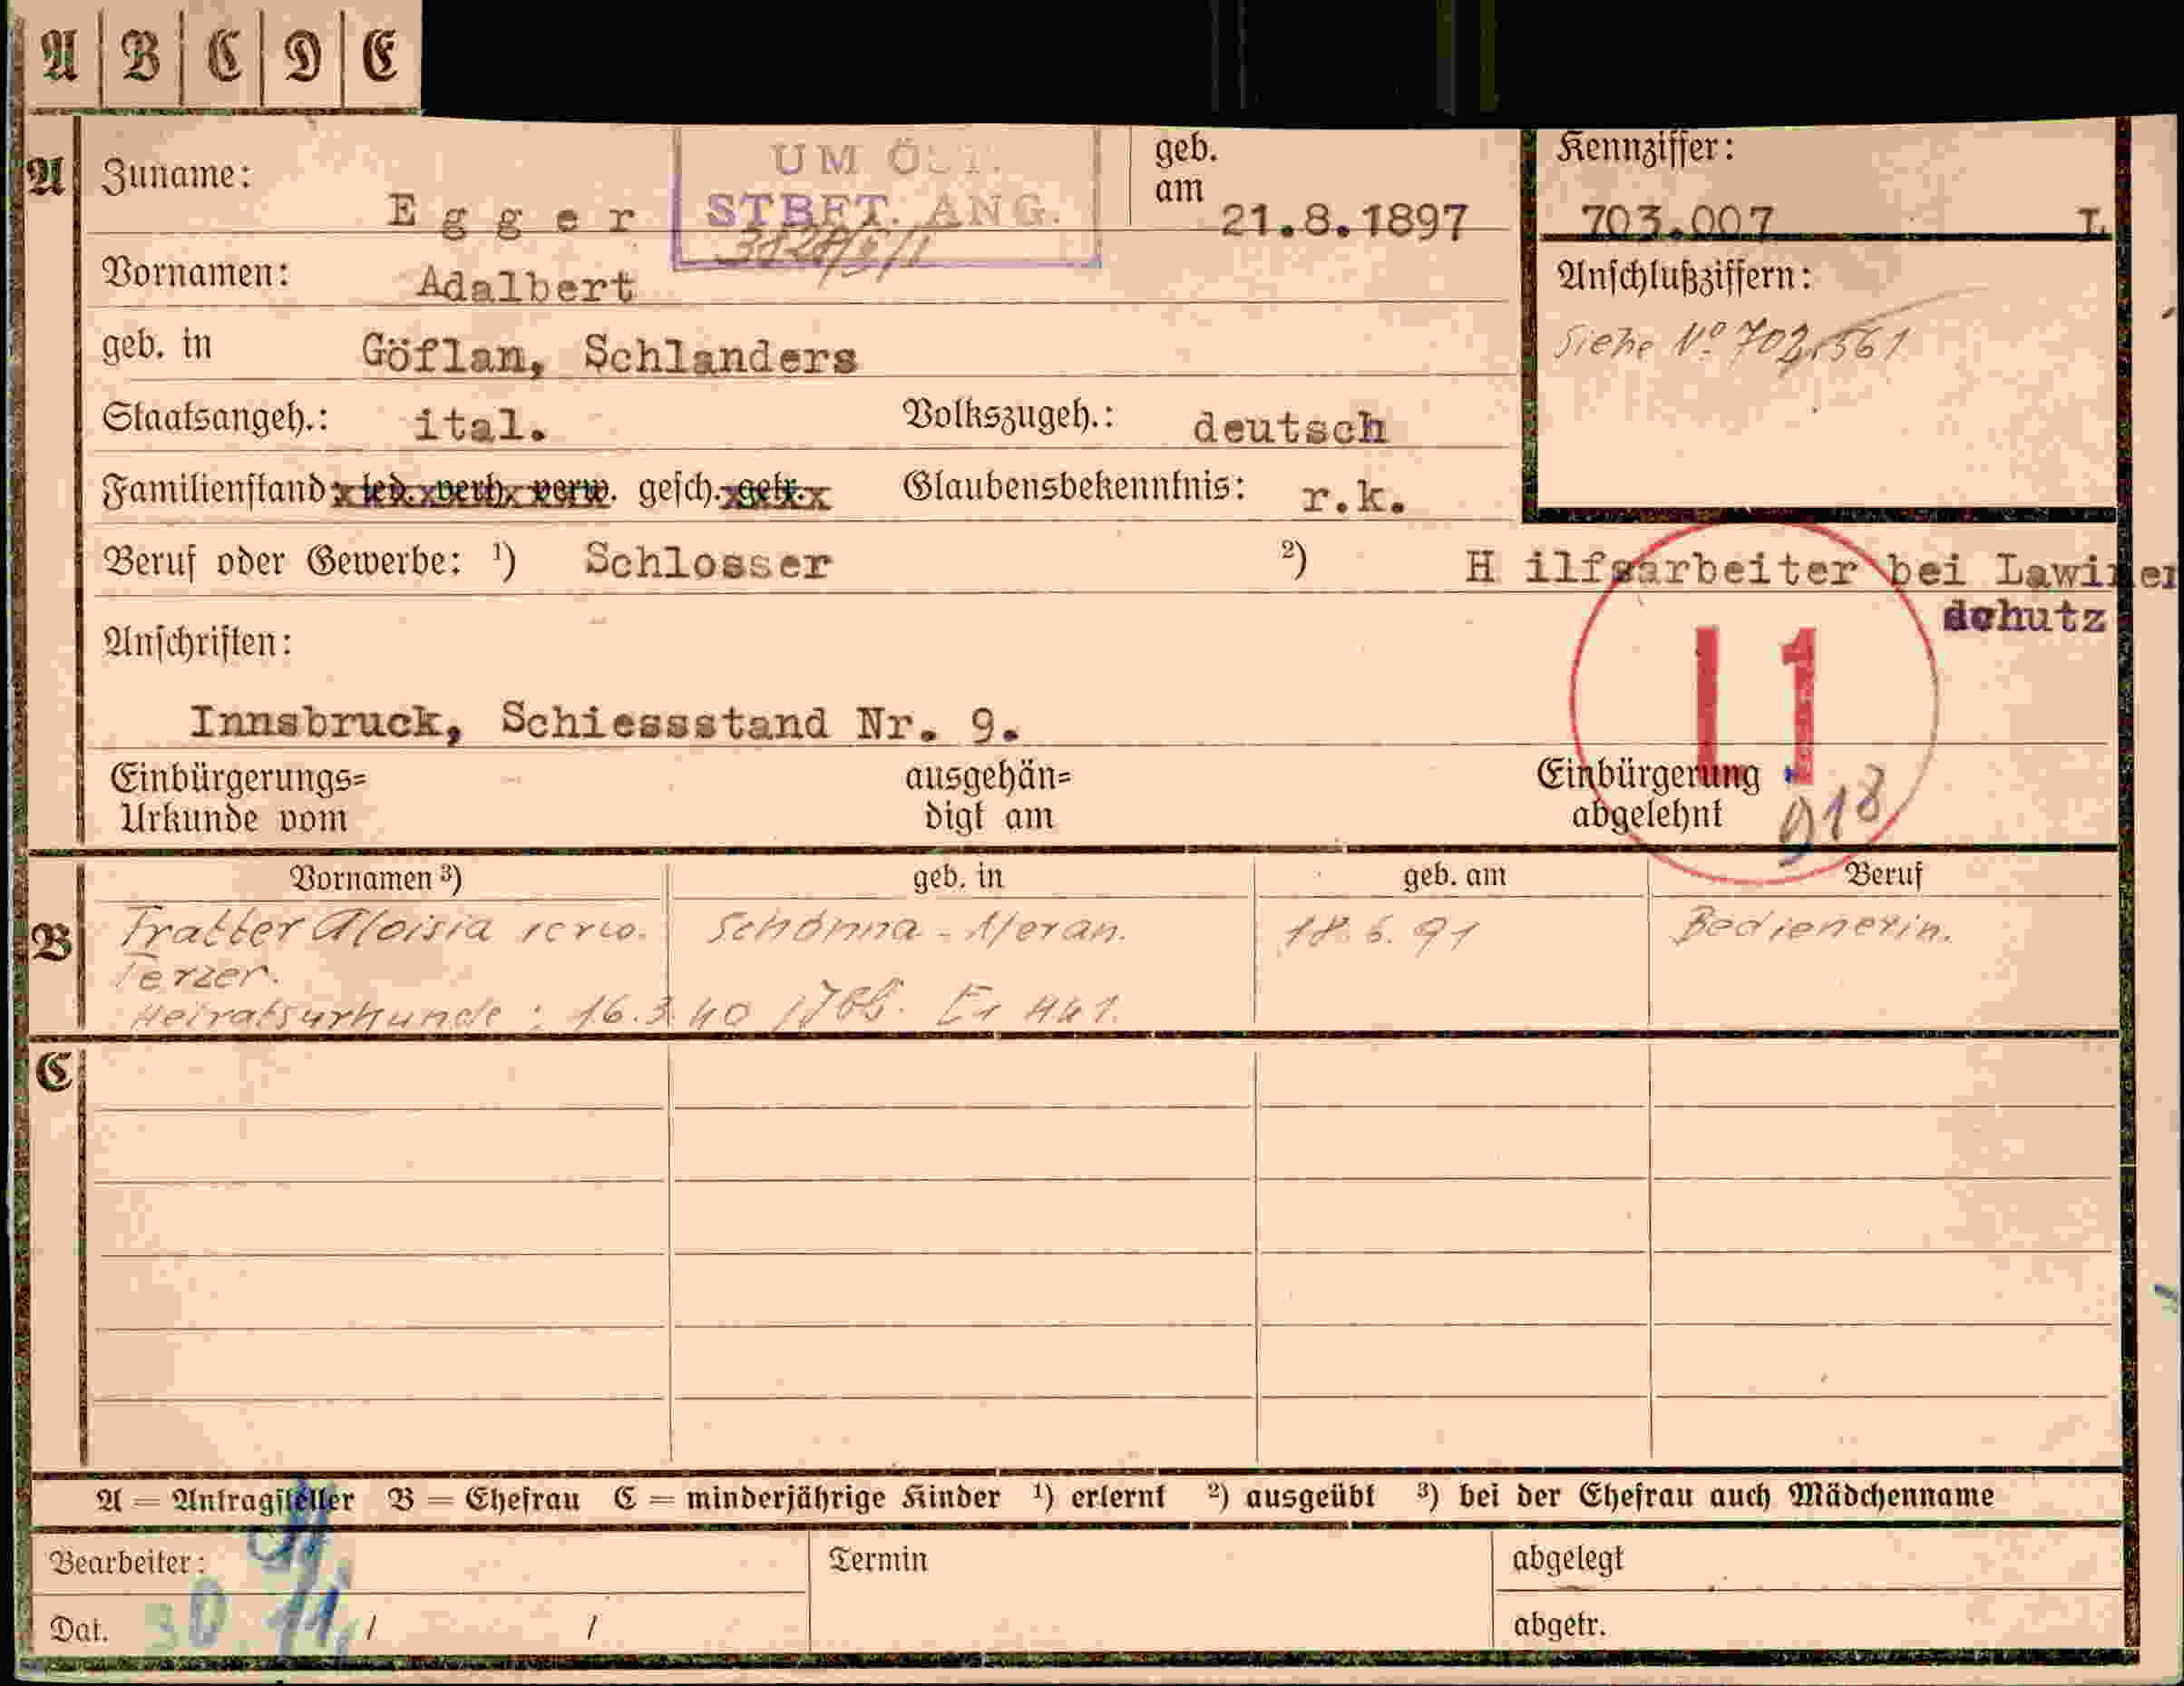 A B C D E
A Zuname: Egger
UM ÖST.
STBET. ANG.
geb. am 21.8.1897
Kennziffer:
703.007 L
Vornamen: Adalbert
Anschlußziffern:
Siehe No 702.561
geb. in Göflan, Schlanders
Staatsangeh.: ital. Volkszugeh.: deutsch
Familienstand: led. verh. verw. gesch. getr. Glaubensbekenntnis: r.k.
Beruf oder Gewerbe: ¹) Schlosser ²) H ilfsarbeiter bei Lawinen
schutz
Anschriften:
L1
Innsbruck, Schiessstand Nr. 9.
Einbürgerungs= ausgehän= Einbürgerung
Urkunde vom digt am abgelehnt 918
Vornamen ³) geb. in geb. am Beruf
B Fratter Aloisia Schönna - Meran. 18.6.91 Bedienerin.
Terzer.
Heiratsurkunde: 16.3.40
C
A = Antragsteller B = Ehefrau C = minderjährige Kinder ¹) erlernt ²) ausgeübt ³) bei der Ehefrau auch Mädchenname
Bearbeiter: Termin abgelegt
Dat. 30 11 / / abgetr.